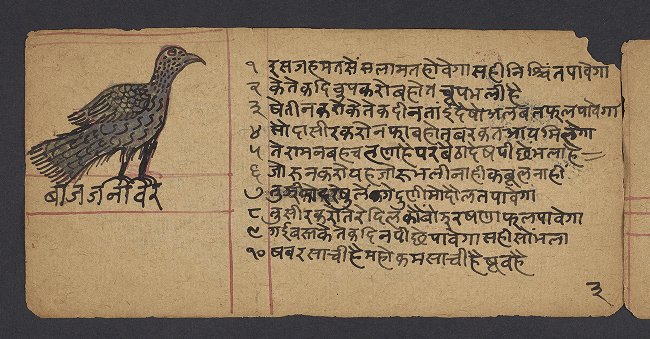 बाजजनांवर
१ इस जहमत सें सलामत होवेगा सही निश्चिंत पावेगा
२ केतेक दि चुप करो बहोत चूप भली है
३ षेती न करो केतेक दीन तांई देषो भल बत फल पावेगा
४ सोदासीर करो नफा बहोत बरकत आय मिलेगा
५ तेरा मन बहच लणा है पर बैठा देष पीछे भला है
६ जो रुन करा यह जो रु भली नाही कबूल नाहीं
७ दुणी सो दोलत पावेगा
८ सीर करो तेरे दिल को षुलपावेगा
९ गई बसत केतेक दिन पीछे पावेगा सही सों भला
१० षबर साची है महोकम साची है षूब है
३